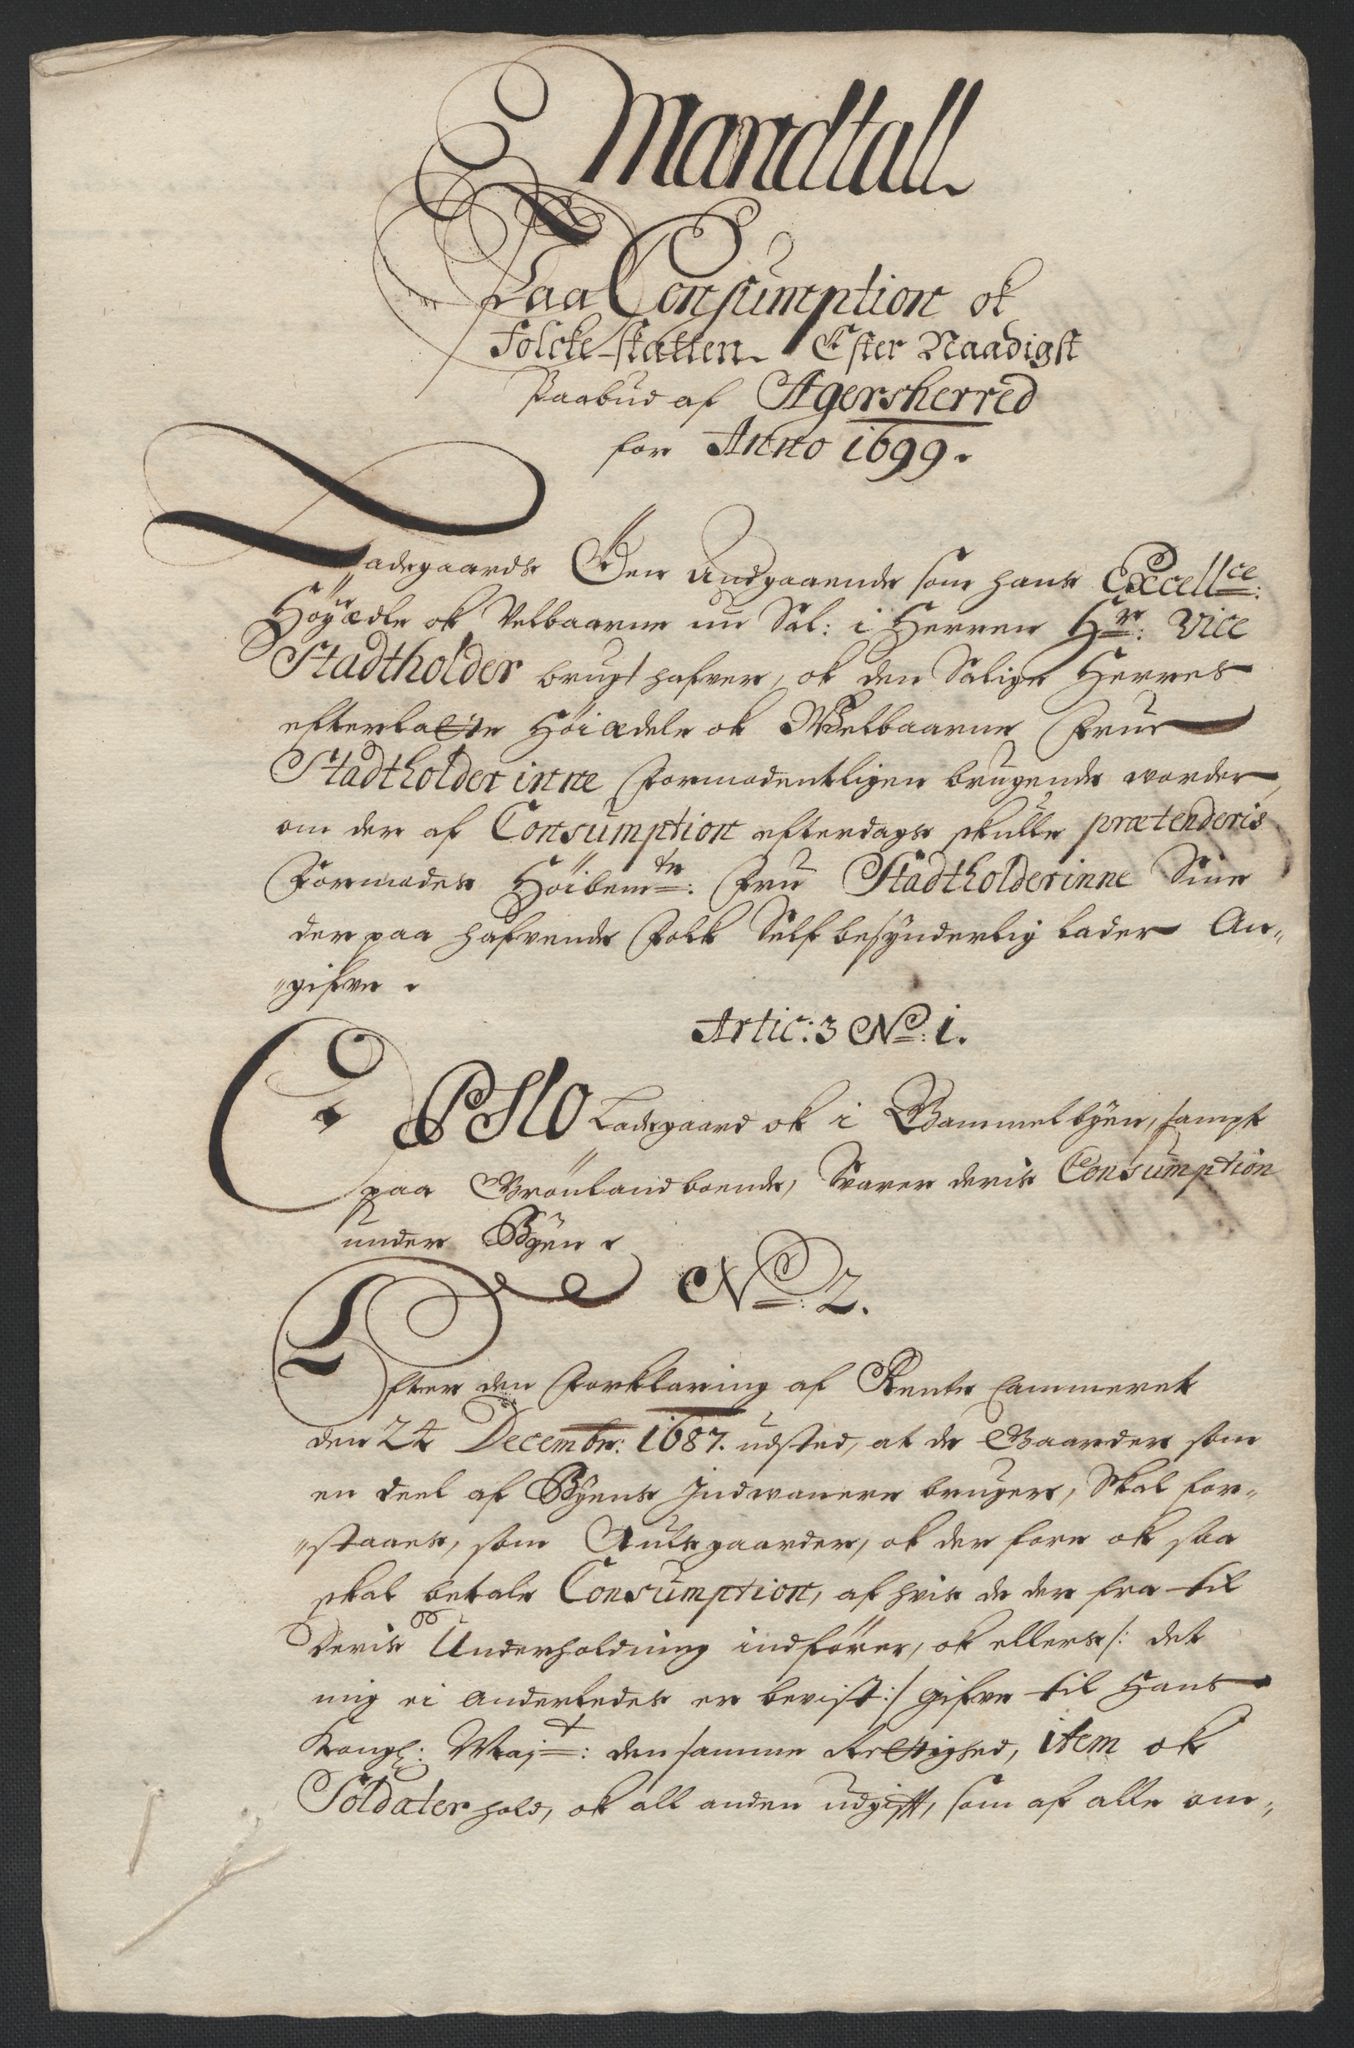 Mandtall
Paa Consumption ok
Folcke skatten Efter Naadigst
Paabud af Agersherred
for Anno 1699.
Ladegaards Øen Andgaaende som hans Excellce:
Höyædle ok Velbaarne nu Sal: i Herren Hr: Vice
Stadtholder brugt hafver, ok den Salige Herres
efterlatte Höiædele ok Welbaarne Frue
Stadtholderinne formodentligen brugende vorder,
om der af Consumption efterdags skulle prætenderis
formodes Höibemte: Fru Stadtholderinne Sine
der paa hafvende folk Self besÿnderlig lader An„
„gifve.
Artic: 3 No: 1.
OPSlo Ladegaard ok i Gammelbÿen, sampt
paa Grönland boende, Svarer deris Consumption
under Bÿen.
No: 2.
Efter den forklaring af Rente Cammeret
den 24 Decembr: 1687. udsted, at de Gaarder som
en deel af Bÿens Indvaanere bruger, Skal for„
„staaes, som Aulsgaarder, ok der fore ok saa
skal betale Consumption, af hvis de der fra til
deris Underholdning indförer, ok ellers /: det
mig ei anderledes er bevist :/ gifve til Hans
Kongl: Maj:t den samme Rettighed, item ok
Soldater hold, ok all anden udgifft, som af alle om„